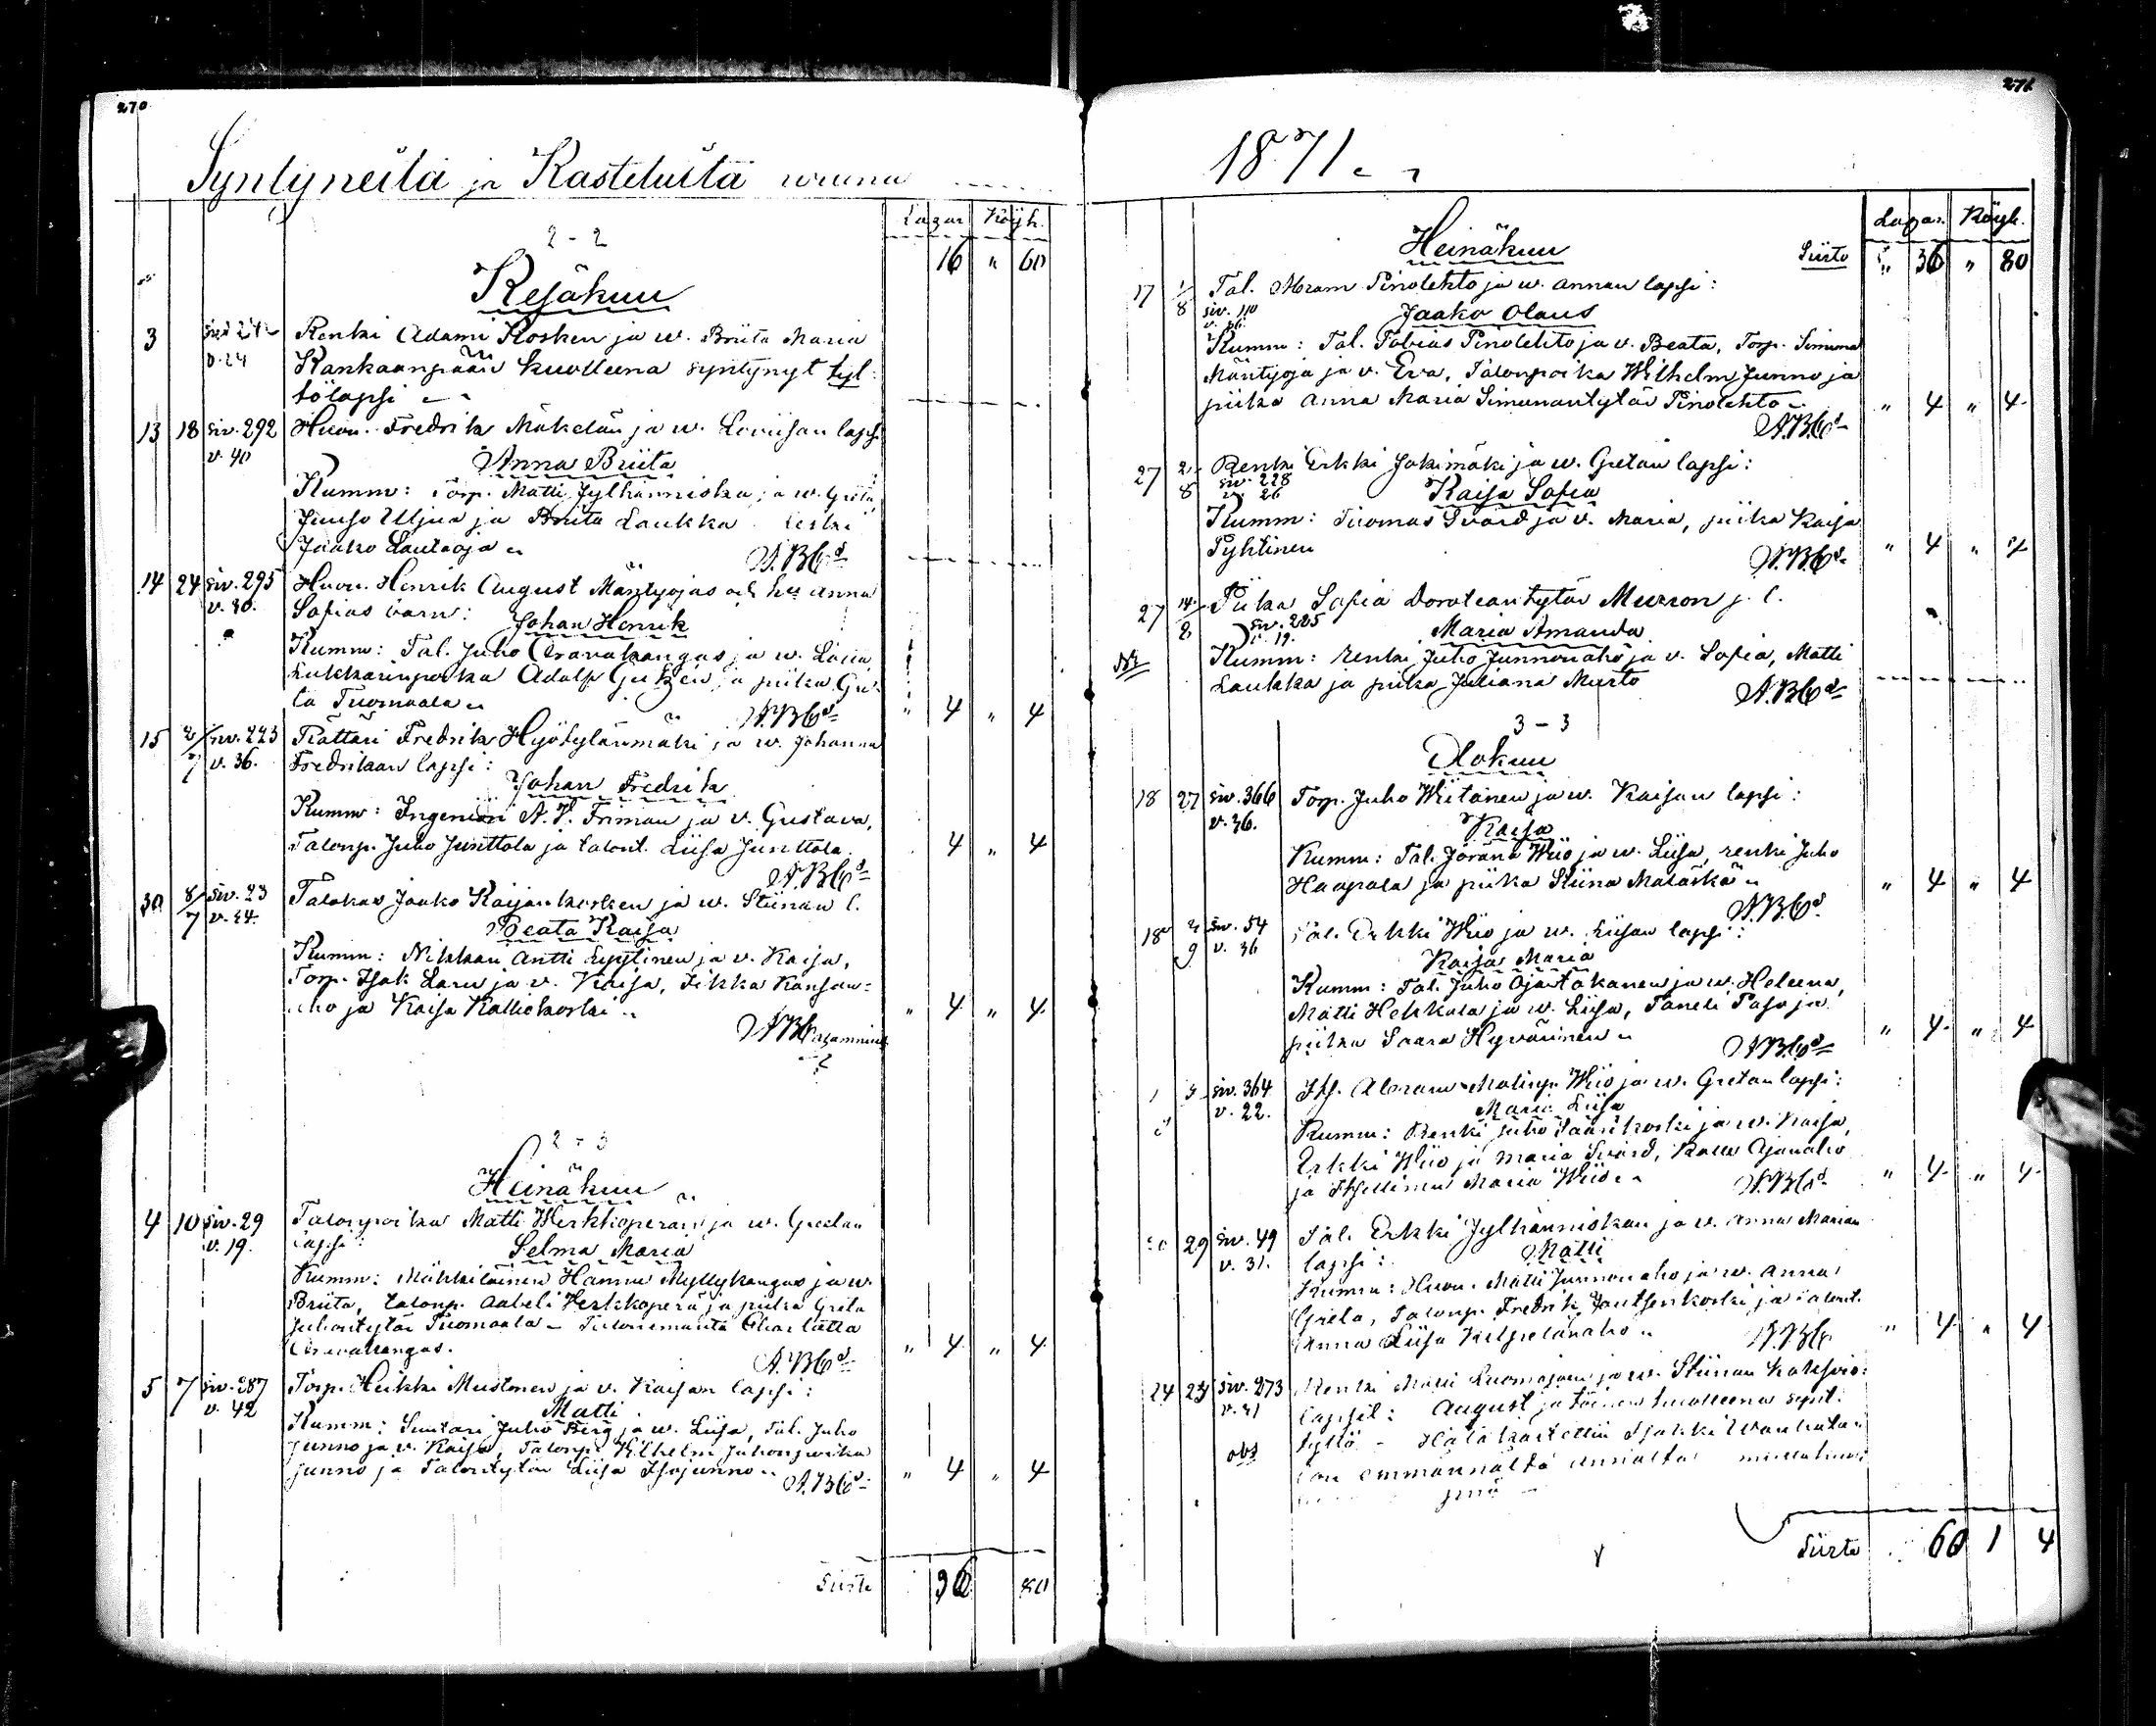 270
Syntyneitä ja Kastetuita wuona
Lazar. Köyh.
2 - 2
16 " 60
Kesäkuu
3 siv. 242 Renki Adami Kosken ja w. Briita Maria
v. 24 Kankaanpään kuolleena syntynyt tyt-
tölapsi
13 18 siv. 292 Huon. Fredrik Mäkelän ja w. Loviisan lapsi
v. 40 Anna Briita
Kumm: Torp. Matti Jylhänniska ja w. Greta
Juuso Uljua ja Briita Laukka leski
Jaako Lautaoja
A.B.C:d
14 24 siv. 295 Huon. Henrik August Mäntyojas och h:s Anna
v. 30. Sofias barn: Johan Henrik
Kumm: Tal. Juho Oravakangas ja w. Liisa
Lukkarinpoika Adolf ja piika Gre-
ta Tuomaala
A.B.C:d " 4 " 4
15 2/7 siv. 223 Rättäri Fredrik Hyötylänmäki ja w. Johanna
v. 36. Fredrikan lapsi:
Johan Fredrik
Kumm: Ingeniöri A. V. Friman ja v. Gustava,
Talonp. Juho Junttola ja talont. Liisa Junttola
4 " 4
A.B.C:d
30 8/7 siv. 23 Talokas Jaako Kaijankosken ja w. Stiinan l.
v. 44. Beata Kaisa
Kumm: Nikkari Antti Lyytinen ja v. Kaisa,
Torp. Isak Laru ja v. Kaisa, Iikka Kansan-
aho ja Kaisa Kalliokoski
" 4 " 4
2 - 3
Heinäkuu
4 10 siv. 29 Talonpoika Matti Herkkoperän ja w. Gretan
v. 19. lapsi: Selma Maria
Kumm: Mäkiläinen Hannu Myllykangas ja w.
Briita, talonp. Aabeli Herkkoperä ja piika Greta
Juhontytär Tuomaala - Talonemäntä Charlotta
Oravakangas.
A.B.C:d " 4 " 4
5 7 siv. 387 Torp. Heikki Mustonen ja v. Kaisan lapsi:
v. 42 Matti
Kumm: Suutari Juho Berg ja w. Liisa, Tal. Juho
Junno ja v. Kaisa, Talonp. Wilhelm Juhonpoika
Junno ja Talontytär Liisa Isojunno
A.B.C:d " 4 " 4
Siirto 36 80
271
1871
Lazar. Köyh.
Heinäkuu Siirto " 36 " 80
17 1/8 Tal. Abram Pinolehto ja w. Annan lapsi:
siv. 110 Jaako Olaus
Kumm: Tal. Tobias Pinolehto ja v. Beata, Torp. Simuna
Mäntyoja ja v. Eva, Talonpoika Wilhelm Junno ja
piika Anna Maria Simunantytär Pinolehto
" 4 " 4
A.B.C:d
27 2/8 Renki Erkki Jokimäki ja w. Gretan lapsi:
siv. 228
v. 26 Kaisa Sofia
Kumm: Tuomas Svärd ja v. Maria, piika Kaisa
Pyhtinen
A.B.C:d " 4 " 4
27 14/8 Piika Sofia Doroteantytär Murron j. l.
siv. 285
v. 19. Maria Amanda
Kumm: renki Juho Junnonaho ja v. Sofia, Matti
Laukka ja piika Juliana Murto
A.B.C:d
3 - 3
Elokuu
18 27 siv. 366 Torp. Juho Wiitanen ja w. Kaisan lapsi:
v. 36. Kaisa
Kumm: Tal. Jöranä Wiio ja w. Liisa, renki Juho
Haapala ja piika Stiina Matäskä
" 4 " 4
A.B.C:d
18 2/9 siv. 54 Tal. Erkki Wiio ja w. Liisan lapsi:
v. 36 Kaisa Maria
Kumm: Tal. Juho Ojantakanen ja w. Heleena,
Matti Hekkala ja w. Liisa, Taneli Paso ja
piika Saara Hyvärinen
A.B.C:d " 4 " 4
siv. 364 Its. Abram Matinp. Wiio ja w. Gretan lapsi:
v. 22. Maria Liisa
Kumm: Renki Juho Saarikoski ja w. Kaisa,
Erkki Wiio ja Maria Svärd, Kalle Ojanaho
ja Itsellinen Maria Wiio
A.B.C:d " 4 " 4
29 siv. 49 Tal. Erkki Jylhänniskan ja v. Anna Marian
v. 31. lapsi: Matti
Kumm: Huon. Matti Junnonaho ja w. Anna
Greta, Talonp. Fredrik Joutsenkoski ja talont.
Anna Liisa Kilpelänaho
A.B.C " 4 " 4
24 23 siv. 273 Renki Matti Luomajoen ja w. Stiinan kaksois-
v. 31 lapsit: August ja toinen kuolleena synt.
obs tyttö - Hätäkastettiin
emmännältä
Siirto 60 1 4